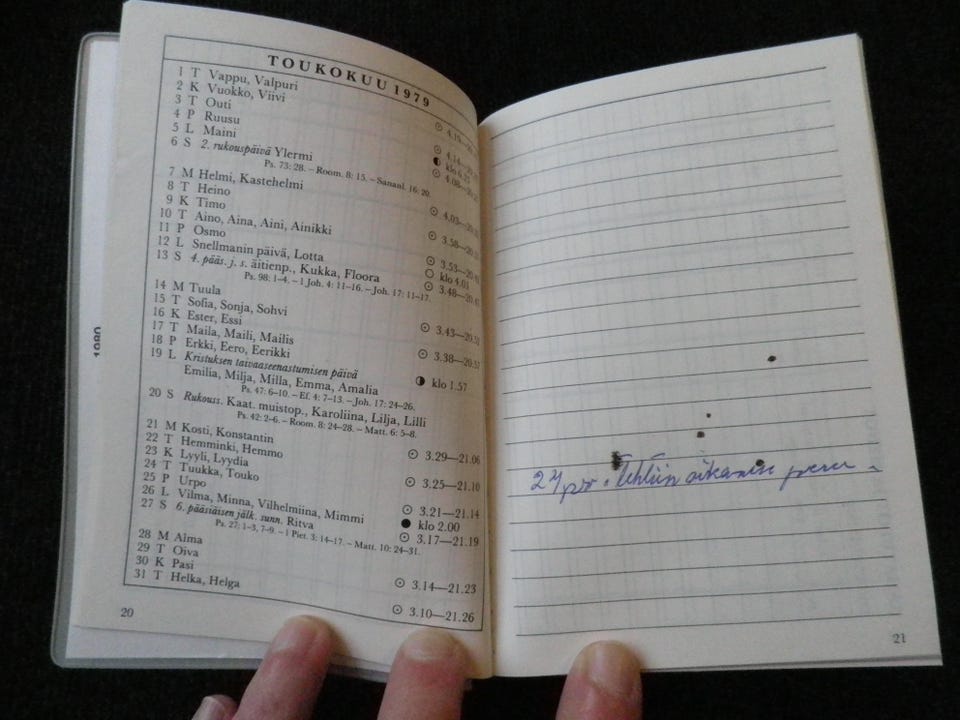 TOUKOKUU 1979
1 T Vappu, Valpuri
2 K Vuokko, Viivi
3 T Outi
4 P Ruusu
5 L Maini
6 S 2. rukouspäivä Ylermi
Ps. 73: 28. – Room. 8: 15. – Sananl. 16: 20.
7 M Helmi, Kastehelmi
8 T Heino
9 K Timo
10 T Aino, Aina, Aini, Ainikki
11 P Osmo
12 L Snellmanin päivä, Lotta
klo 4.01
13 S 4. pääs. j. s. äitienp., Kukka, Floora
Ps. 98: 1–4. – 1 Joh. 4: 11–16. – Joh. 17: 11–17.
14 M Tuula
15 T Sofia, Sonja, Sohvi
16 K Ester, Essi
17 T Maila, Maili, Mailis
18 P Erkki, Eero, Eerikki
19 L Kristuksen taivaaseenastumisen päivä
Emilia, Milja, Milla, Emma, Amalia klo 1.57
Ps. 47: 6–10. – Ef. 4: 7–13. – Joh. 17: 24–26.
20 S Rukouss. Kaat. muistop., Karoliina, Lilja, Lilli
Ps. 42: 2–6. – Room. 8: 24–28. – Matt. 6: 5–8.
21 M Kosti, Konstantin
3.29—21.06
22 T Hemminki, Hemmo
23 K Lyyli, Lyydia
3.25—21.10
24 T Tuukka, Touko
25 P Urpo
3.21—21.14
26 L Vilma, Minna, Vilhelmiina, Mimmi klo 2.00
27 S 6. pääsiäisen jälk. sunn. Ritva 3.17—21.19
Ps. 27: 1–3, 7–9. – 1 Piet. 3: 14–17. – Matt. 10: 24–31.
28 M Alma
29 T Oiva
3.14—21.23
30 K Pasi
31 T Helka, Helga
3.10—21.26
20
tehtiin
21
1980